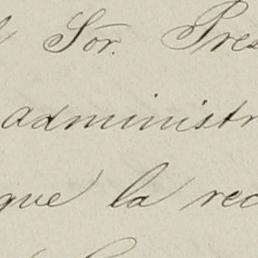 Sor. Pres
administr
que la rec